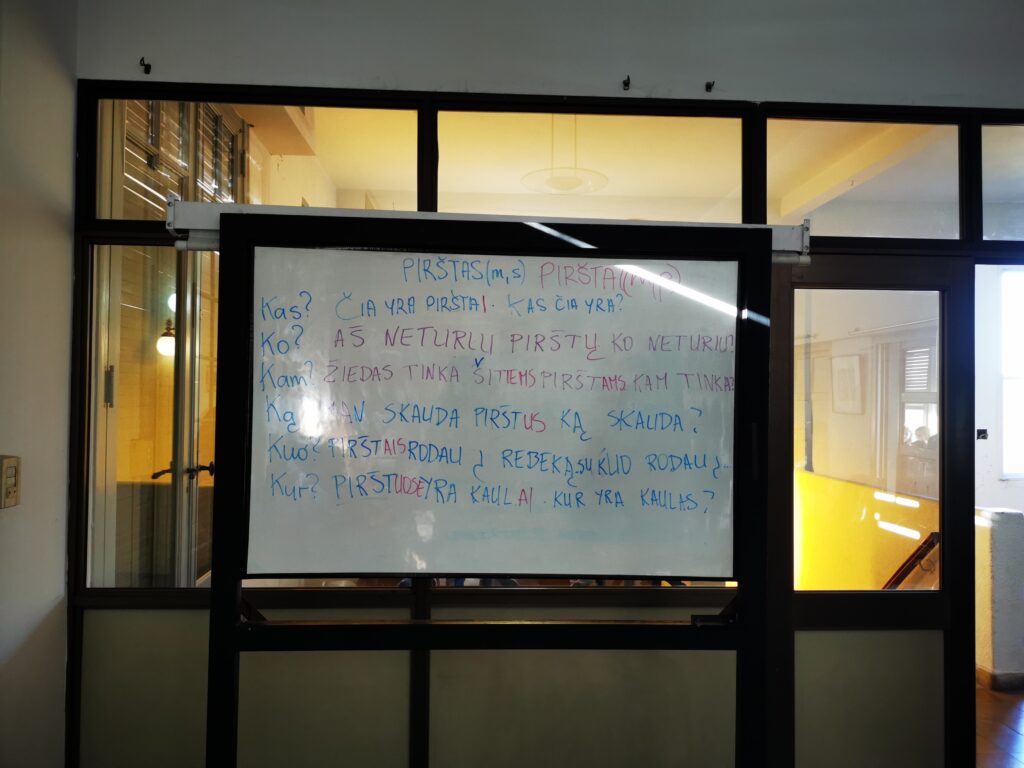 PIRŠTAS(m,s) PIRŠTAI(m,p)
Kas? ČIA YRA PIRŠTAI. KAS ČIA YRA?
Ko? AŠ NETURLŲ PIRŠTŲ KO NETURIU?
Kam? ŽIEDAS TINKA ŠITIEMS PIRŠTAMS KAM TINKA?
Ką? MAN SKAUDA PIRŠTUS KĄ SKAUDA?
Kuo? PIRŠTAIS RODAU Į REBEKĄ. SU KUO RODAU Į..
Kur? PIRŠTUOSE YRA KAULAI. KUR YRA KAULAS?